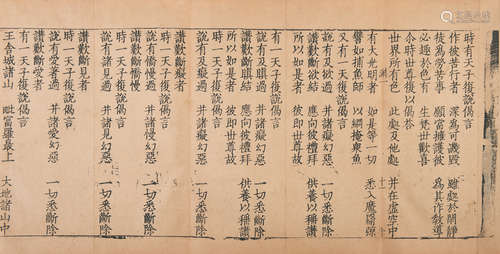 時有天子復說偈言
作彼苦行者　深為可譏毀　雖處於閑靜
徒為勞苦事　願當擁護彼　為其作教導
必趣於色有　生梵世歡喜
尒時世尊復以偈答
世界所有色　此處及他處　并在虛空中
有大光明者　如是等一切　悉入魔羂弶
譬如捕魚師　以網掩衆魚
又有一天子復說偈言
說有及欲過　并諸欲幻惡　一切悉斷除
讚歎斷欲結　應向彼禮拜　供養以稱讚
所以如是者　彼即世尊故
有一天子復說偈言
說有及瞋過　并諸瞋幻惡　一切悉斷除
讚歎斷瞋結　應向彼禮拜　供養以稱讚
所以如是者　彼即世尊故
時一天子復說偈言
說有及癡過　并諸癡幻惡　一切悉斷除
讚歎斷癡者
時一天子復說偈言
說有憍慢過　并諸慢幻惡　一切悉斷除
讚歎斷憍慢者
時一天子復說偈言
說有諸見過　并諸見幻惡　一切悉斷除
讚歎斷見者
時一天子復說偈言
說有愛著過　并諸愛幻惡　一切悉斷除
讚歎斷愛者
王舍城諸山　毗富羅最上　大地諸山中